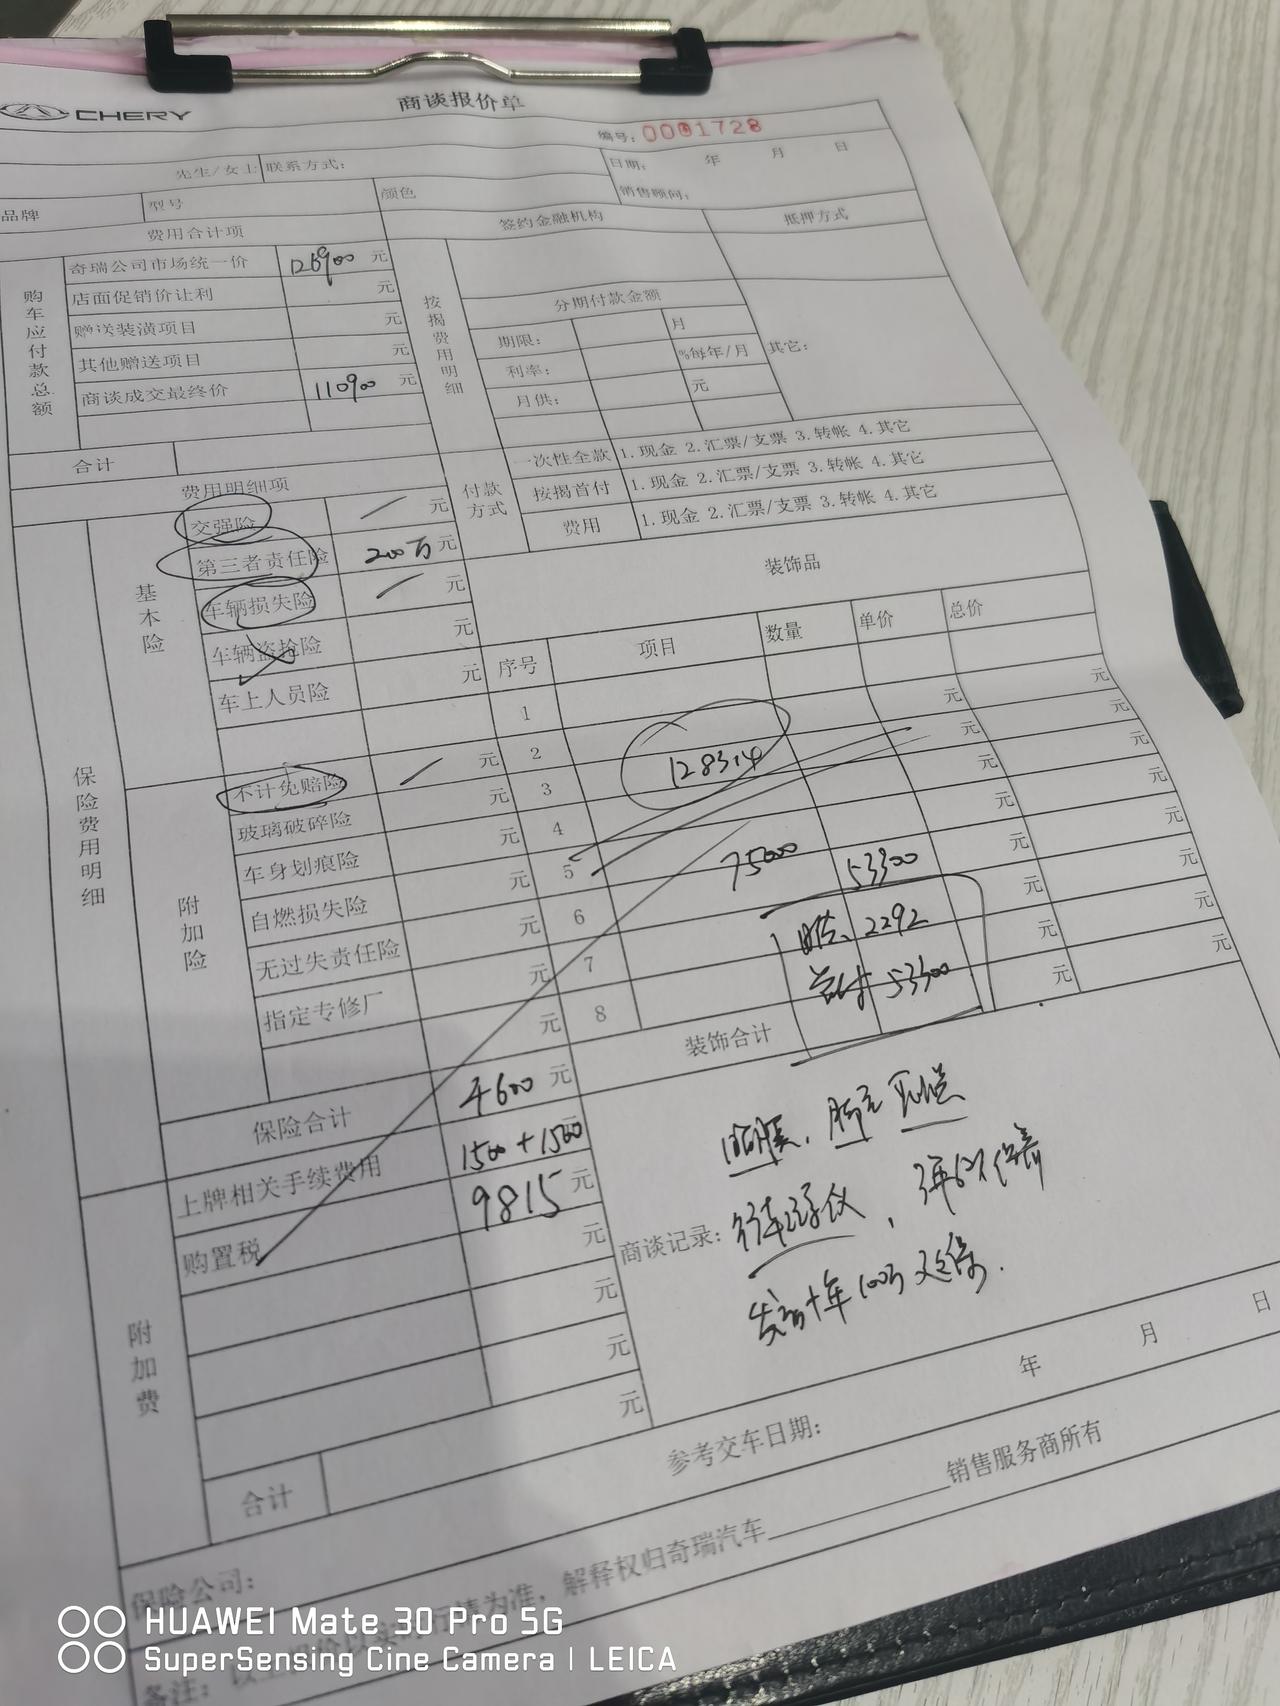 CHERY
商谈报价单
编号: 0001728
先生/女士 联系方式:
日期: 年 月 日
销售顾问:
品牌 型号 颜色
费用合计项
签约金融机构 抵押方式
购车应付款总额
奇瑞公司市场统一价 126900 元
店面促销价让利 元
赠送装潢项目 元
其他赠送项目 元
商谈成交最终价 110900 元
合计
按揭费用明细
分期付款金额
期限: 月
利率: %每年/月
月供: 元
其它:
付款方式
一次性全款 1.现金 2.汇票/支票 3.转帐 4.其它
按揭首付 1.现金 2.汇票/支票 3.转帐 4.其它
费用 1.现金 2.汇票/支票 3.转帐 4.其它
费用明细项
保险费用明细
基本险
交强险 元
第三者责任险 200万 元
车辆损失险 元
车辆盗抢险 元
车上人员险 元
附加险
不计免赔险 元
玻璃破碎险 元
车身划痕险 元
自燃损失险 元
无过失责任险 元
指定专修厂 元
元
保险合计 4600 元
装饰品
序号 项目 数量 单价 总价
1 元 元
2 元 元
3 128314 元 元
4 元 元
5 元 元
6 75000 53300 元 元
7 2292 元 元
8 53300 元 元
装饰合计
附加费
上牌相关手续费用 1500+1500 元
购置税 9815 元
元
元
元
元
合计
商谈记录:
脚垫
行车记录仪
保养
发动十年100万
参考交车日期: 年 月 日
保险公司:
为准, 解释权归奇瑞汽车 销售服务商所有
备注:
HUAWEI Mate 30 Pro 5G
SuperSensing Cine Camera | LEICA